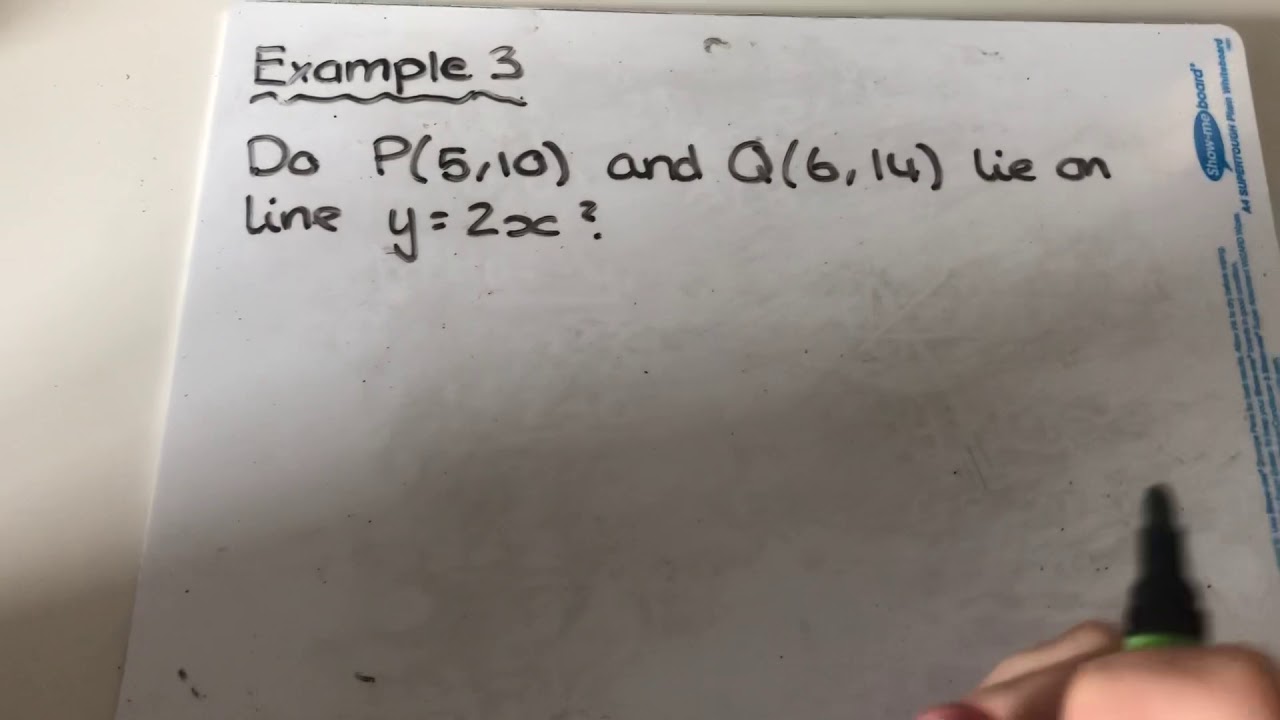 Example 3
Do P(5,10) and Q(6,14) lie on
line y=2x?
Show-me board
A4 SUPERTOUGH Plain Whiteboard